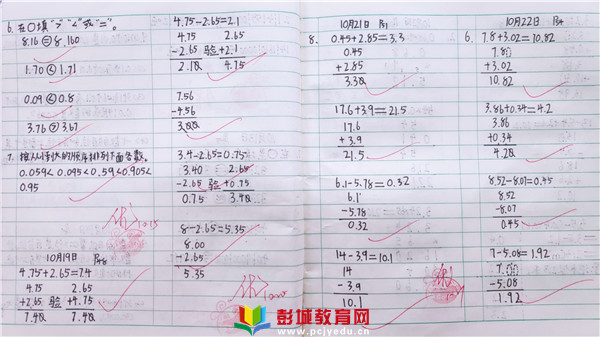 6. 在○填">""<"或"="。
8.16 = 8.160
1.70 < 1.71
0.09 < 0.8
3.76 > 3.67
7. 按从小到大的顺序排列下面各数。
0.059 < 0.095 < 0.59 < 0.905 <
0.95
10月19日 P48
4.75+2.65=7.4
4.75 2.65
+2.65 验 +4.75
7.40 7.40
4.75-2.65=2.1
4.75 2.65
-2.65 验 +2.1
2.10 4.75
7.56
-4.56
3.00
3.4-2.65=0.75
3.40 2.65
-2.65 验 +0.75
0.75 3.40
8-2.65=5.35
8.00
-2.65
5.35
10月21日
8. 0.45+2.85=3.3
0.45
+2.85
3.30
17.6+3.9=21.5
17.6
+3.9
21.5
6.1-5.78=0.32
6.1
-5.78
0.32
14-3.9=10.1
14
-3.9
10.1
10月22日
6. 7.8+3.02=10.82
7.8
+3.02
10.82
3.86+0.34=4.2
3.86
+0.34
4.20
8.52-8.07=0.45
8.52
-8.07
0.45
7-5.08=1.92
7.
-5.08
1.92
彭城教育网
www.pcjyedu.cn